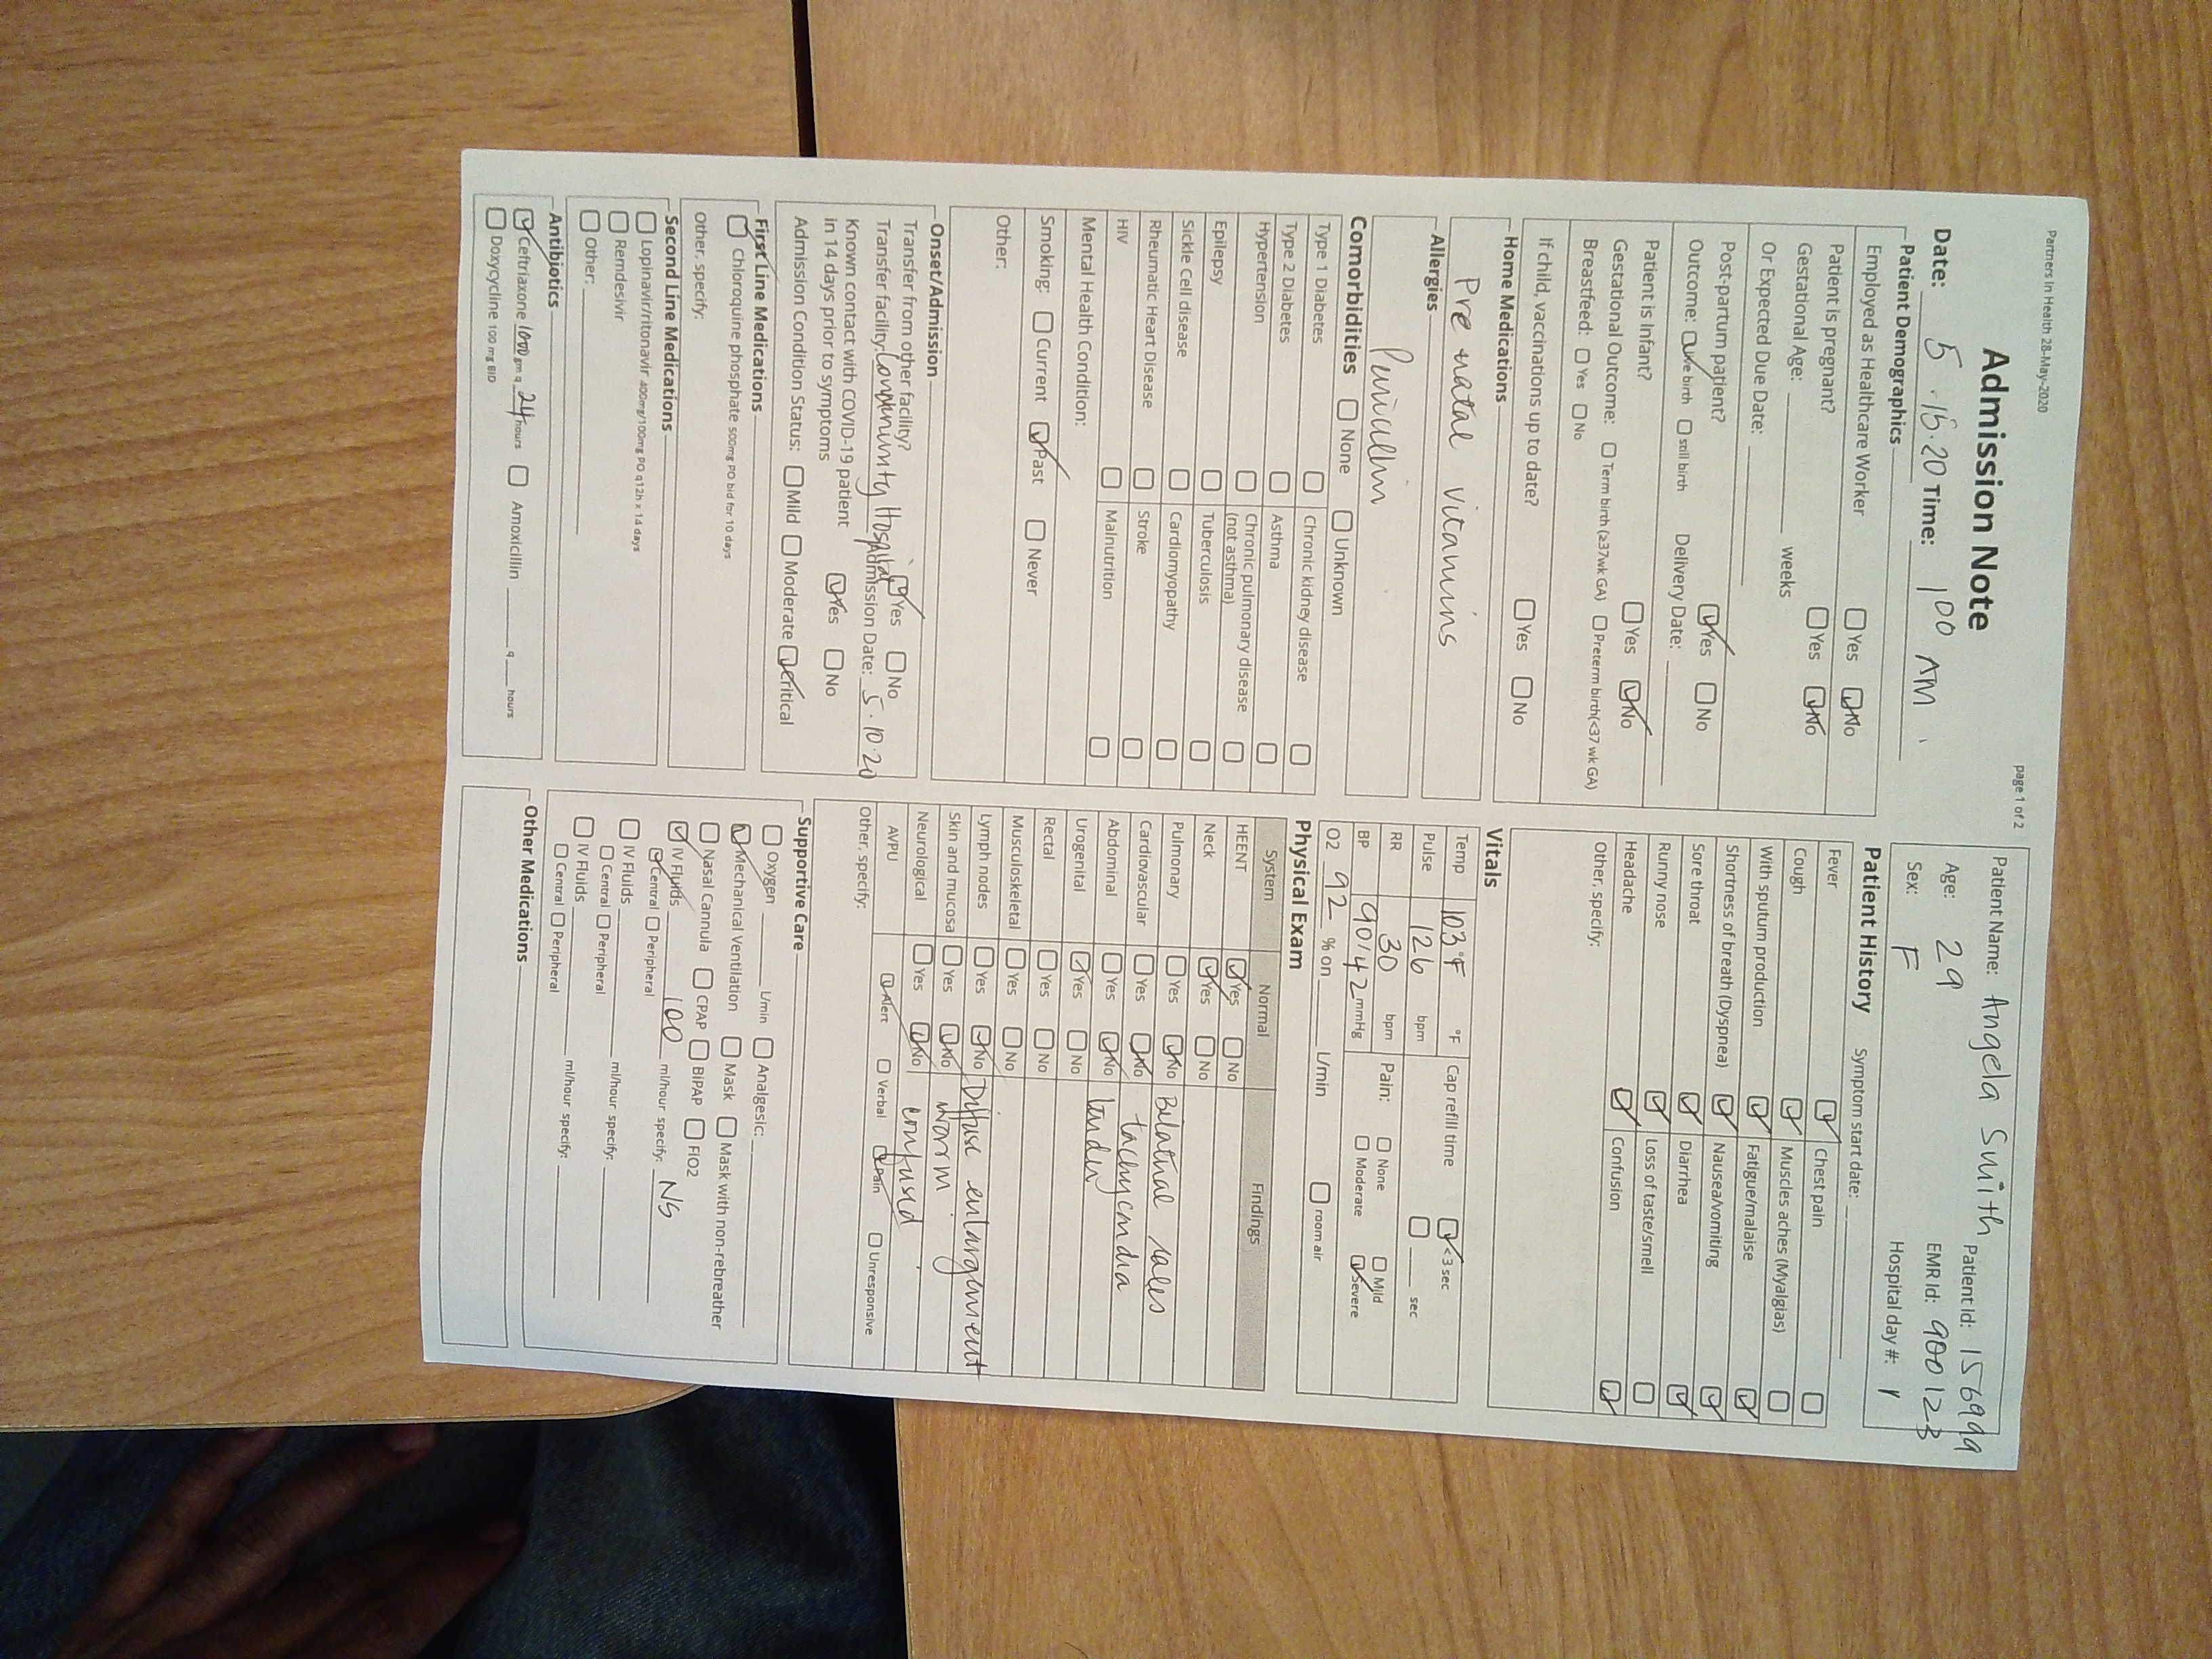 Partners In Health 28-May-2020
page 1 of 2
Admission Note
Date: 5 . 16 . 20 Time: 1 00 AM .
Patient Name: Angela Smith Patient Id: 156999
Age: 29 EMR Id: 900123
Sex: F Hospital day #: 1
Patient Demographics
Employed as Healthcare Worker Yes No
Patient is pregnant? Yes No
Gestational Age: weeks
Or Expected Due Date:
Post-partum patient? Yes No
Outcome: Live birth still birth Delivery Date:
Patient is Infant? Yes No
Gestational Outcome: Term birth (≥37wk GA) Preterm birth(<37 wk GA)
Breastfeed: Yes No
If child, vaccinations up to date? Yes No
Home Medications
Pre natal vitamins
Allergies
Penicellin
Comorbidities None Unknown
Type 1 Diabetes Chronic kidney disease
Type 2 Diabetes Asthma
Hypertension Chronic pulmonary disease (not asthma)
Epilepsy Tuberculosis
Sickle Cell disease Cardiomyopathy
Rheumatic Heart Disease Stroke
HIV Malnutrition
Mental Health Condition:
Smoking: Current Past Never
Other:
Onset/Admission
Transfer from other facility? Yes No
Transfer facility: Community Hospital Admission Date: 5 . 10 . 20
Known contact with COVID-19 patient
in 14 days prior to symptoms Yes No
Admission Condition Status: Mild Moderate Critical
First Line Medications
Chloroquine phosphate 500mg PO bid for 10 days
Other, specify:
Second Line Medications
Lopinavir/ritonavir 400mg/100mg PO q12h x 14 days
Remdesivir
Other:
Antibiotics
Ceftriaxone 1000 gm q 24 hours Amoxicillin q hours
Doxycycline 100 mg BID
Patient History Symptom start date:
Fever Chest pain
Cough Muscles aches (Myalgias)
With sputum production Fatigue/malaise
Shortness of breath (Dyspnea) Nausea/vomiting
Sore throat Diarrhea
Runny nose Loss of taste/smell
Headache Confusion
Other, specify:
Vitals
Temp 103°F °F Cap refill time <3 sec
Pulse 126 bpm sec
RR 30 bpm Pain: None Mild
BP 90/42 mmHg Moderate Severe
O2 92 % on L/min room air
Physical Exam
System Normal Findings
HEENT Yes No
Neck Yes No
Pulmonary Yes No Bilatural rales
Cardiovascular Yes No tachycardia
Abdominal Yes No tender
Urogenital Yes No
Rectal Yes No
Musculoskeletal Yes No
Lymph nodes Yes No Diffuse enlargement
Skin and mucosa Yes No warm .
Neurological Yes No confused .
AVPU Alert Verbal Pain Unresponsive
Other, specify:
Supportive Care
Oxygen L/min Analgesic:
Mechanical Ventilation Mask Mask with non-rebreather
Nasal Cannula CPAP BiPAP FIO2
IV Fluids 100 ml/hour specify: NS
Central Peripheral
IV Fluids ml/hour specify:
Central Peripheral
IV Fluids ml/hour specify:
Central Peripheral
Other Medications